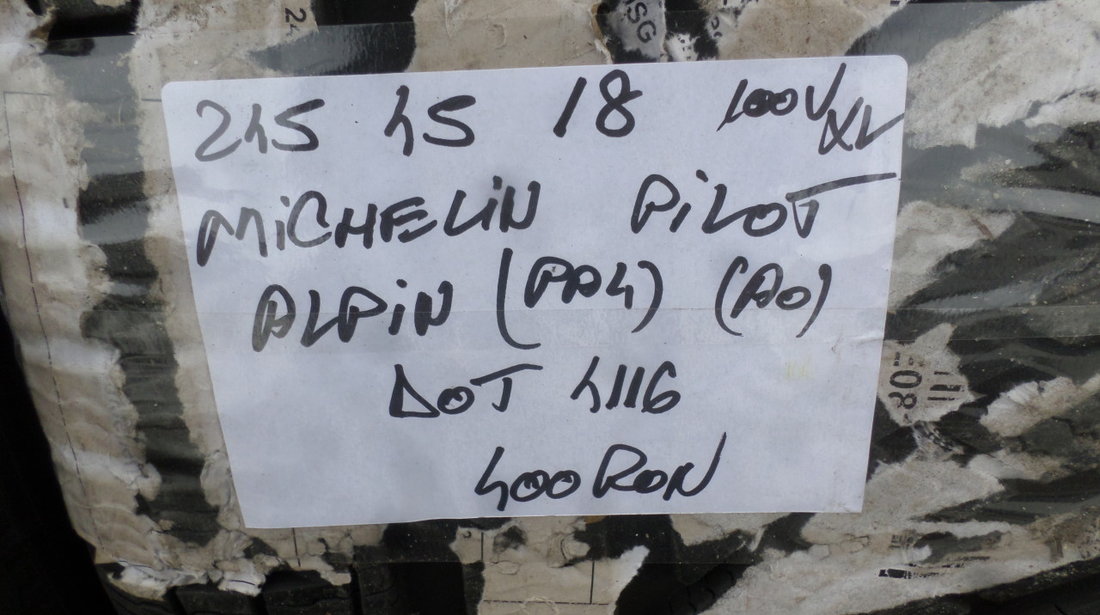 24
SG
245 45 18 100V XL
MiCHELiN PiLOT
ALPiN (PA4) (AO)
DOT 4116
400 RON
80